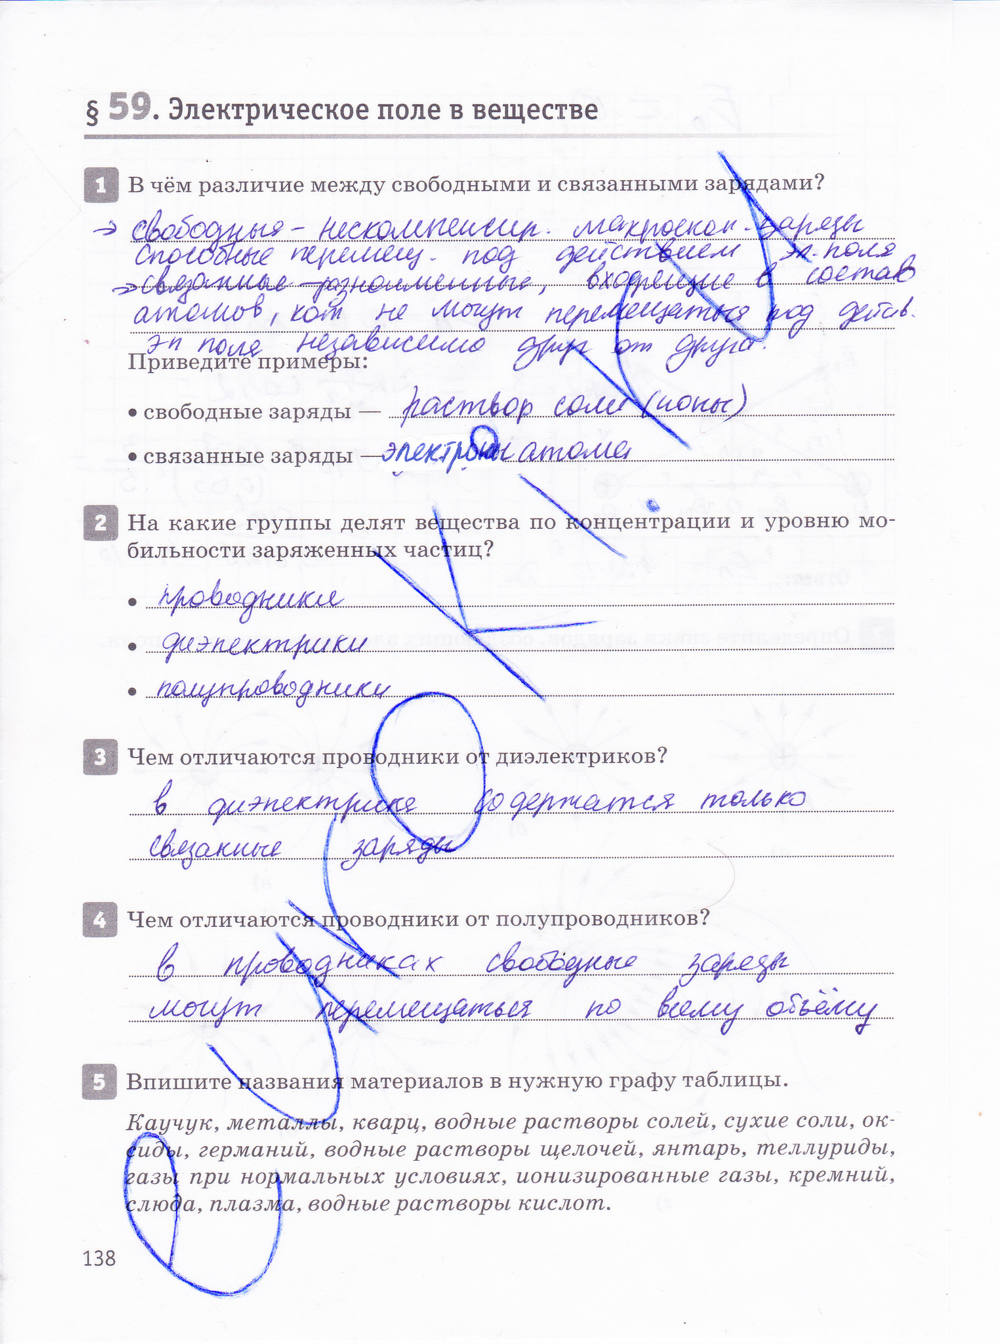 § 59. Электрическое поле в веществе
1 В чём различие между свободными и связанными зарядами?
→ свободные – нескомпенсир. макроскоп. заряды
способные перемещ. под действием эл. поля
→ связанные – разноименные, входящие в состав
атомов, кот не могут перемещаться под действ.
эл поля независимо друг от друга.
Приведите примеры:
• свободные заряды — раствор соли (ионы)
• связанные заряды — электроны атома
2 На какие группы делят вещества по концентрации и уровню мо-
бильности заряженных частиц?
• проводники
• диэлектрики
• полупроводники
3 Чем отличаются проводники от диэлектриков?
в диэлектрике содержатся только
связанные заряды
4 Чем отличаются проводники от полупроводников?
в проводниках свободные заряды
могут перемещаться по всему объёму
5 Впишите названия материалов в нужную графу таблицы.
Каучук, металлы, кварц, водные растворы солей, сухие соли, ок-
сиды, германий, водные растворы щелочей, янтарь, теллуриды,
газы при нормальных условиях, ионизированные газы, кремний,
слюда, плазма, водные растворы кислот.
138